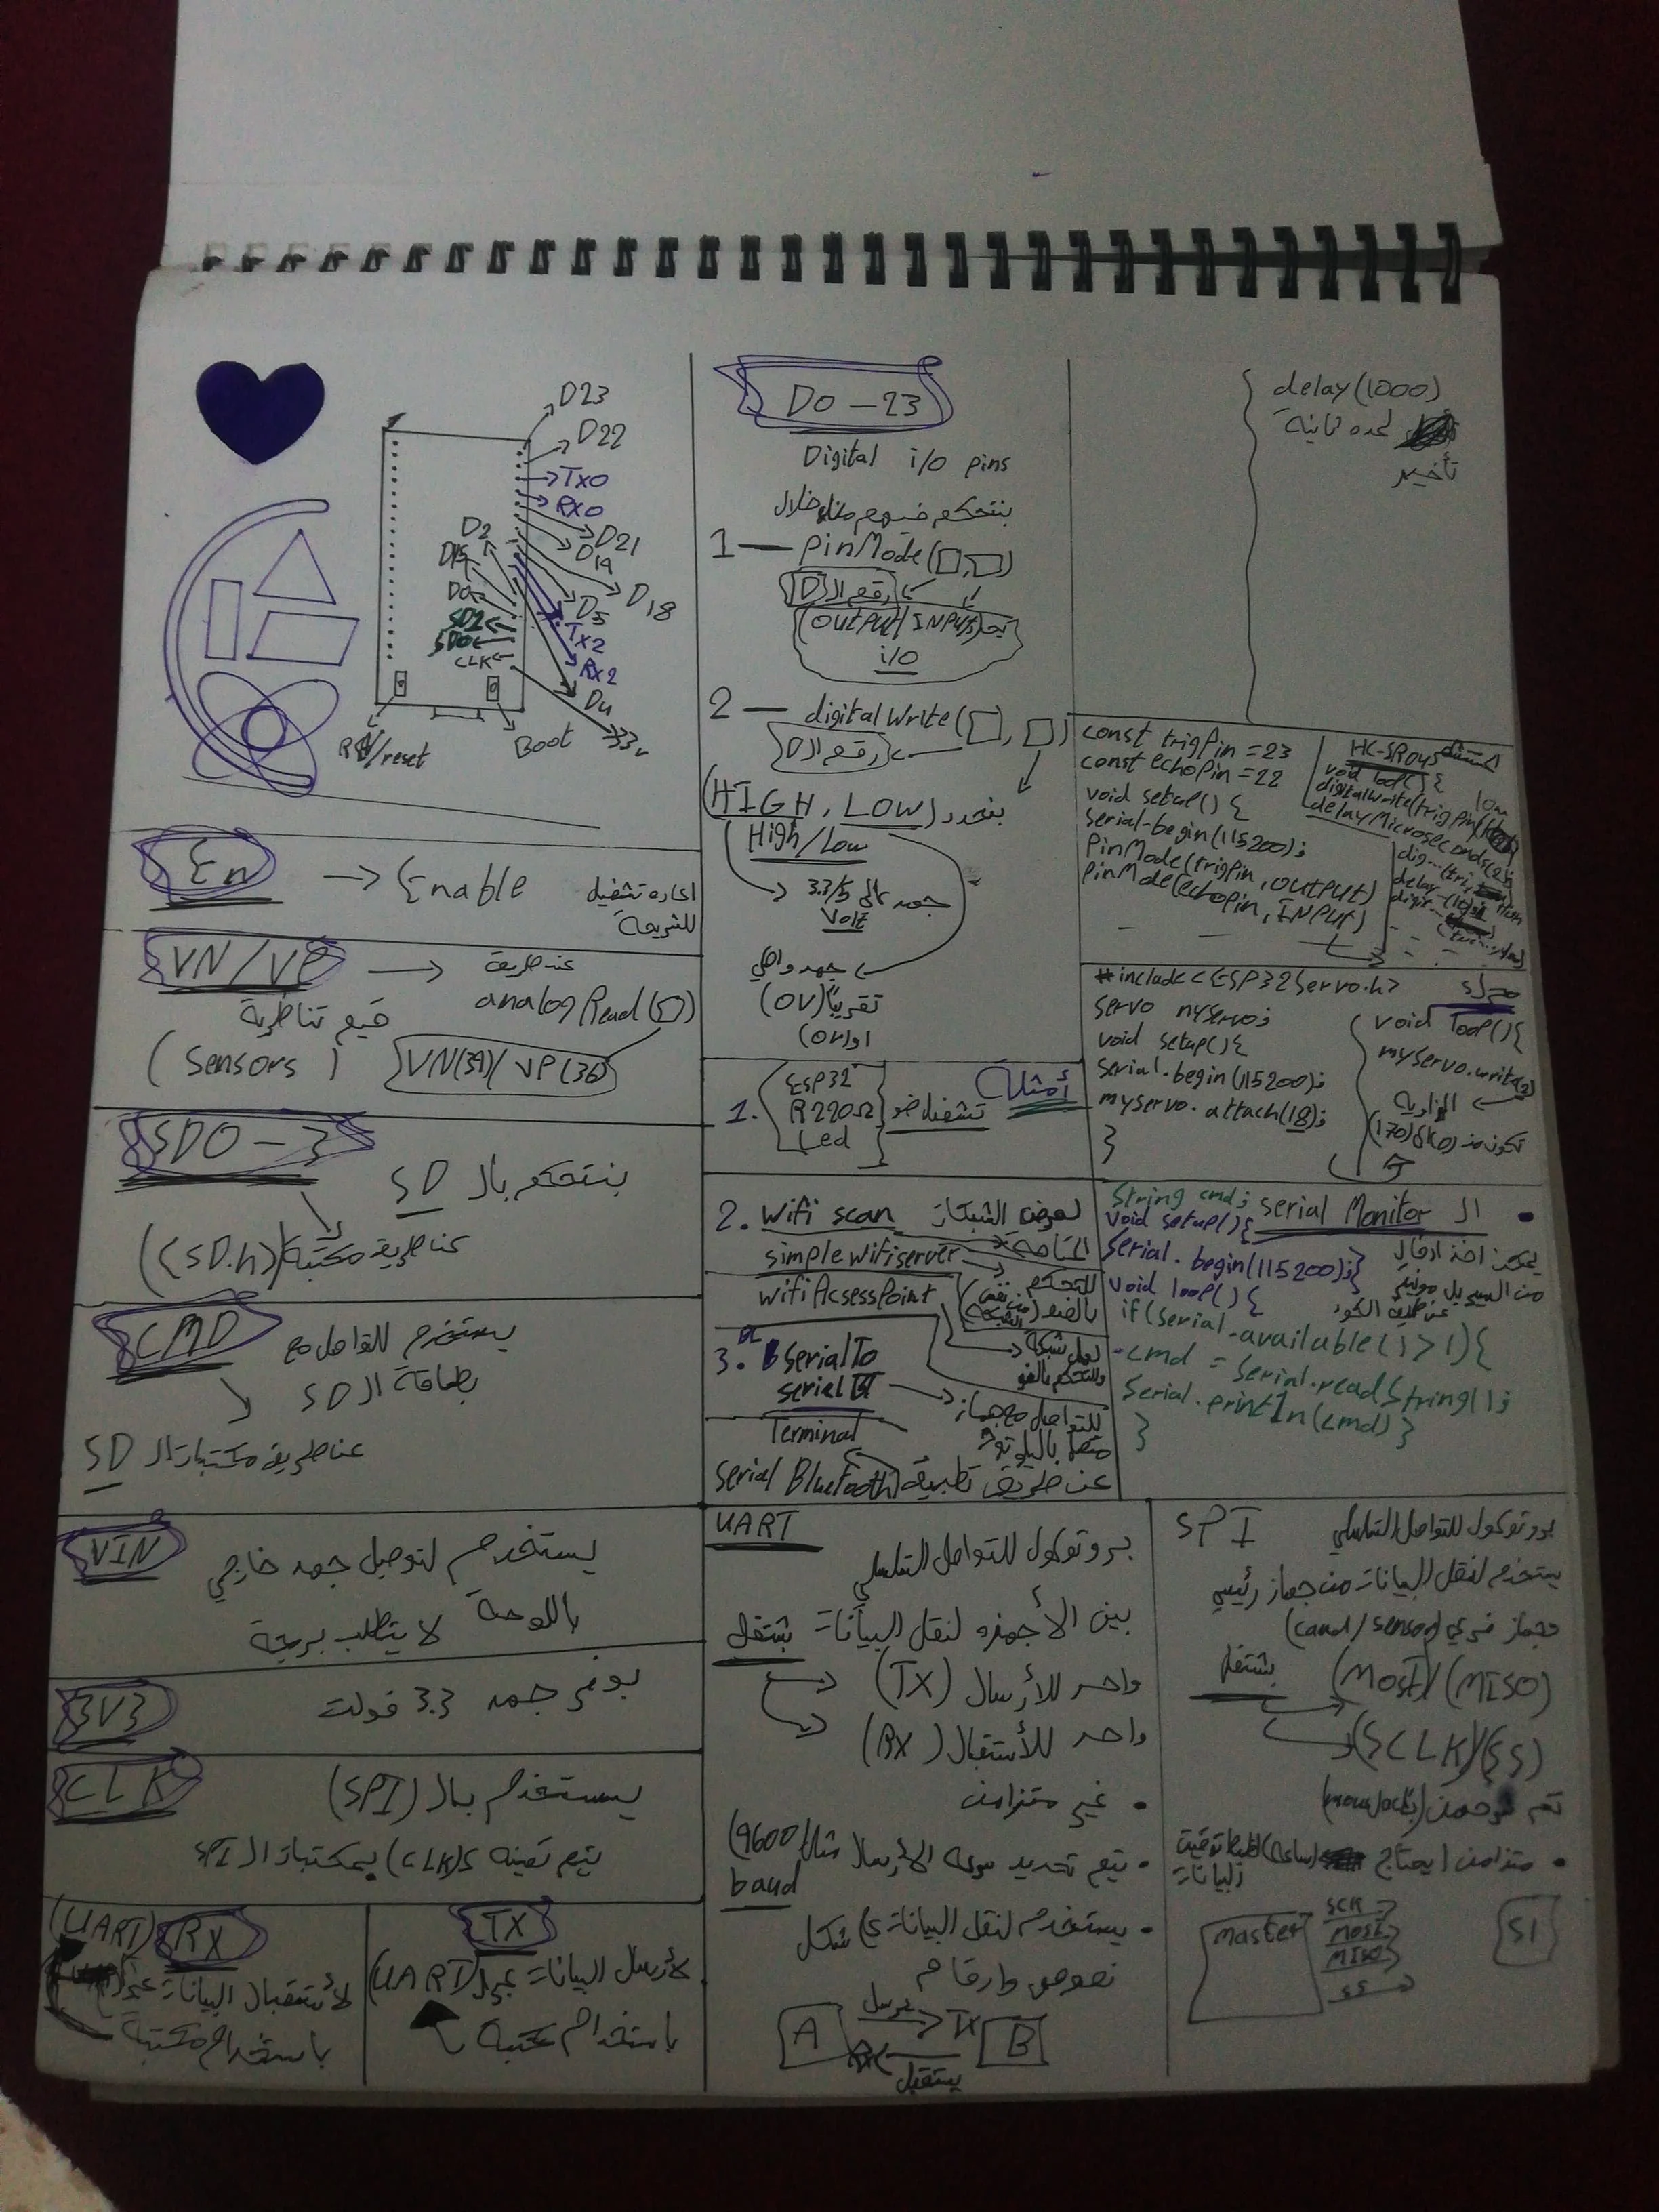 D23
D22
TX0
RX0
D21
D19
D18
D5
TX2
RX2
D4
33v
D2
D15
D0
SD1
SD0
CLK
/reset
Boot
En → Enable
اعاده تشغيل
للشريحة
VN/VP →
عن طريق
analogRead( )
قيم تناظرية
(Sensors)
VN(39)/ VP(36)
SD0-3
بنتحكم بال SD
عن طريق مكتبة (SD.h)
CMD
يستخدم للتواصل مع
بطاقة ال SD
عن طريق مكتبات ال SD
VIN
يستخدم لتوصيل جهد خارجي
باللوحة لا يتطلب برمجة
3V3
يوفر جهد 3.3 فولت
CLK
يستخدم بال (SPI)
يتم تعينه ك(CLK) بمكتبات ال SPI
(UART) RX
لأستقبال البيانات عبر
باستخدام مكتبة
TX
لأرسال البيانات عبر (UART)
باستخدام مكتبة
D0-23
Digital i/o pins
بنتحكم فيهم من خلال
1— pinMode(□,□)
رقم ال D
(OUTPUT/INPUT)
i/o
2— digitalWrite(□,□)
رقم ال D
بنحدد (HIGH, LOW)
High/Low
جهد عالي 3.3/5
Volt
جهد واطي
تقريبًا (0V)
او (0V)
أمثلة
1. ESP32
R220Ω
Led
تشغيل ضو
2. Wifi scan لعرض الشبكات
المتاحة
simpleWifiserver
للتحكم
بالضو (من نفس
الشبكة)
WifiAcsessPoint
لعمل شبكة
والتحكم بالضو
3. serialTo
serialBT
للتواصل مع جهاز
متصل بالبلوتوث
Terminal
عن طريق تطبيق Serial Bluetooth
UART
بروتوكول للتواصل التسلسلي
بين الأجهزه لنقل البيانات بشتغل
واحد للأرسال (TX)
واحد للأستقبال (RX)
• غير متزامن
• يتم تحديد سرعه الارسال مثال (9600
baud
• يستخدم لنقل البيانات ع شكل
نصوص وارقام
A
يرسل
TX
B
يستقبل
delay(1000)
لمدة ثانية
تأخير
const trigPin = 23
const echoPin = 22
void setup() {
serial-begin(115200);
PinMode(trigPin, OUTPUT)
pinMode(echoPin, INPUT)
HC-SR04
void loop() {
low
digitalWrite(trigPin,
delayMicroseconds(2);
dig...(tri,
delay
digit...
#include <ESP32Servo.h>
servo myservo;
void setup(){
serial.begin(115200);
myservo.attach(18);
}
void loop(){
myservo.write( )
الزاوية
تكون من (0) ال (170)
ال Serial Monitor •
يمكن اخذ ادخال
من السيريل مونيتر
عن طريق الكود
String cmd;
void setup(){
Serial.begin(115200);}
void loop(){
if(serial.available()>1){
cmd = Serial.readString();
Serial.println(cmd)}
}
SPI
بروتوكول للتواصل التسلسلي
يستخدم لنقل البيانات من جهاز رئيسي
وجهاز فرعي (card/sensor)
بشتغل
(MOSI)/(MISO)
(SCLK)/(SS)
• متزامن (يحتاج
البيانات
master
SCK
MOSI
MISO
SS
S1